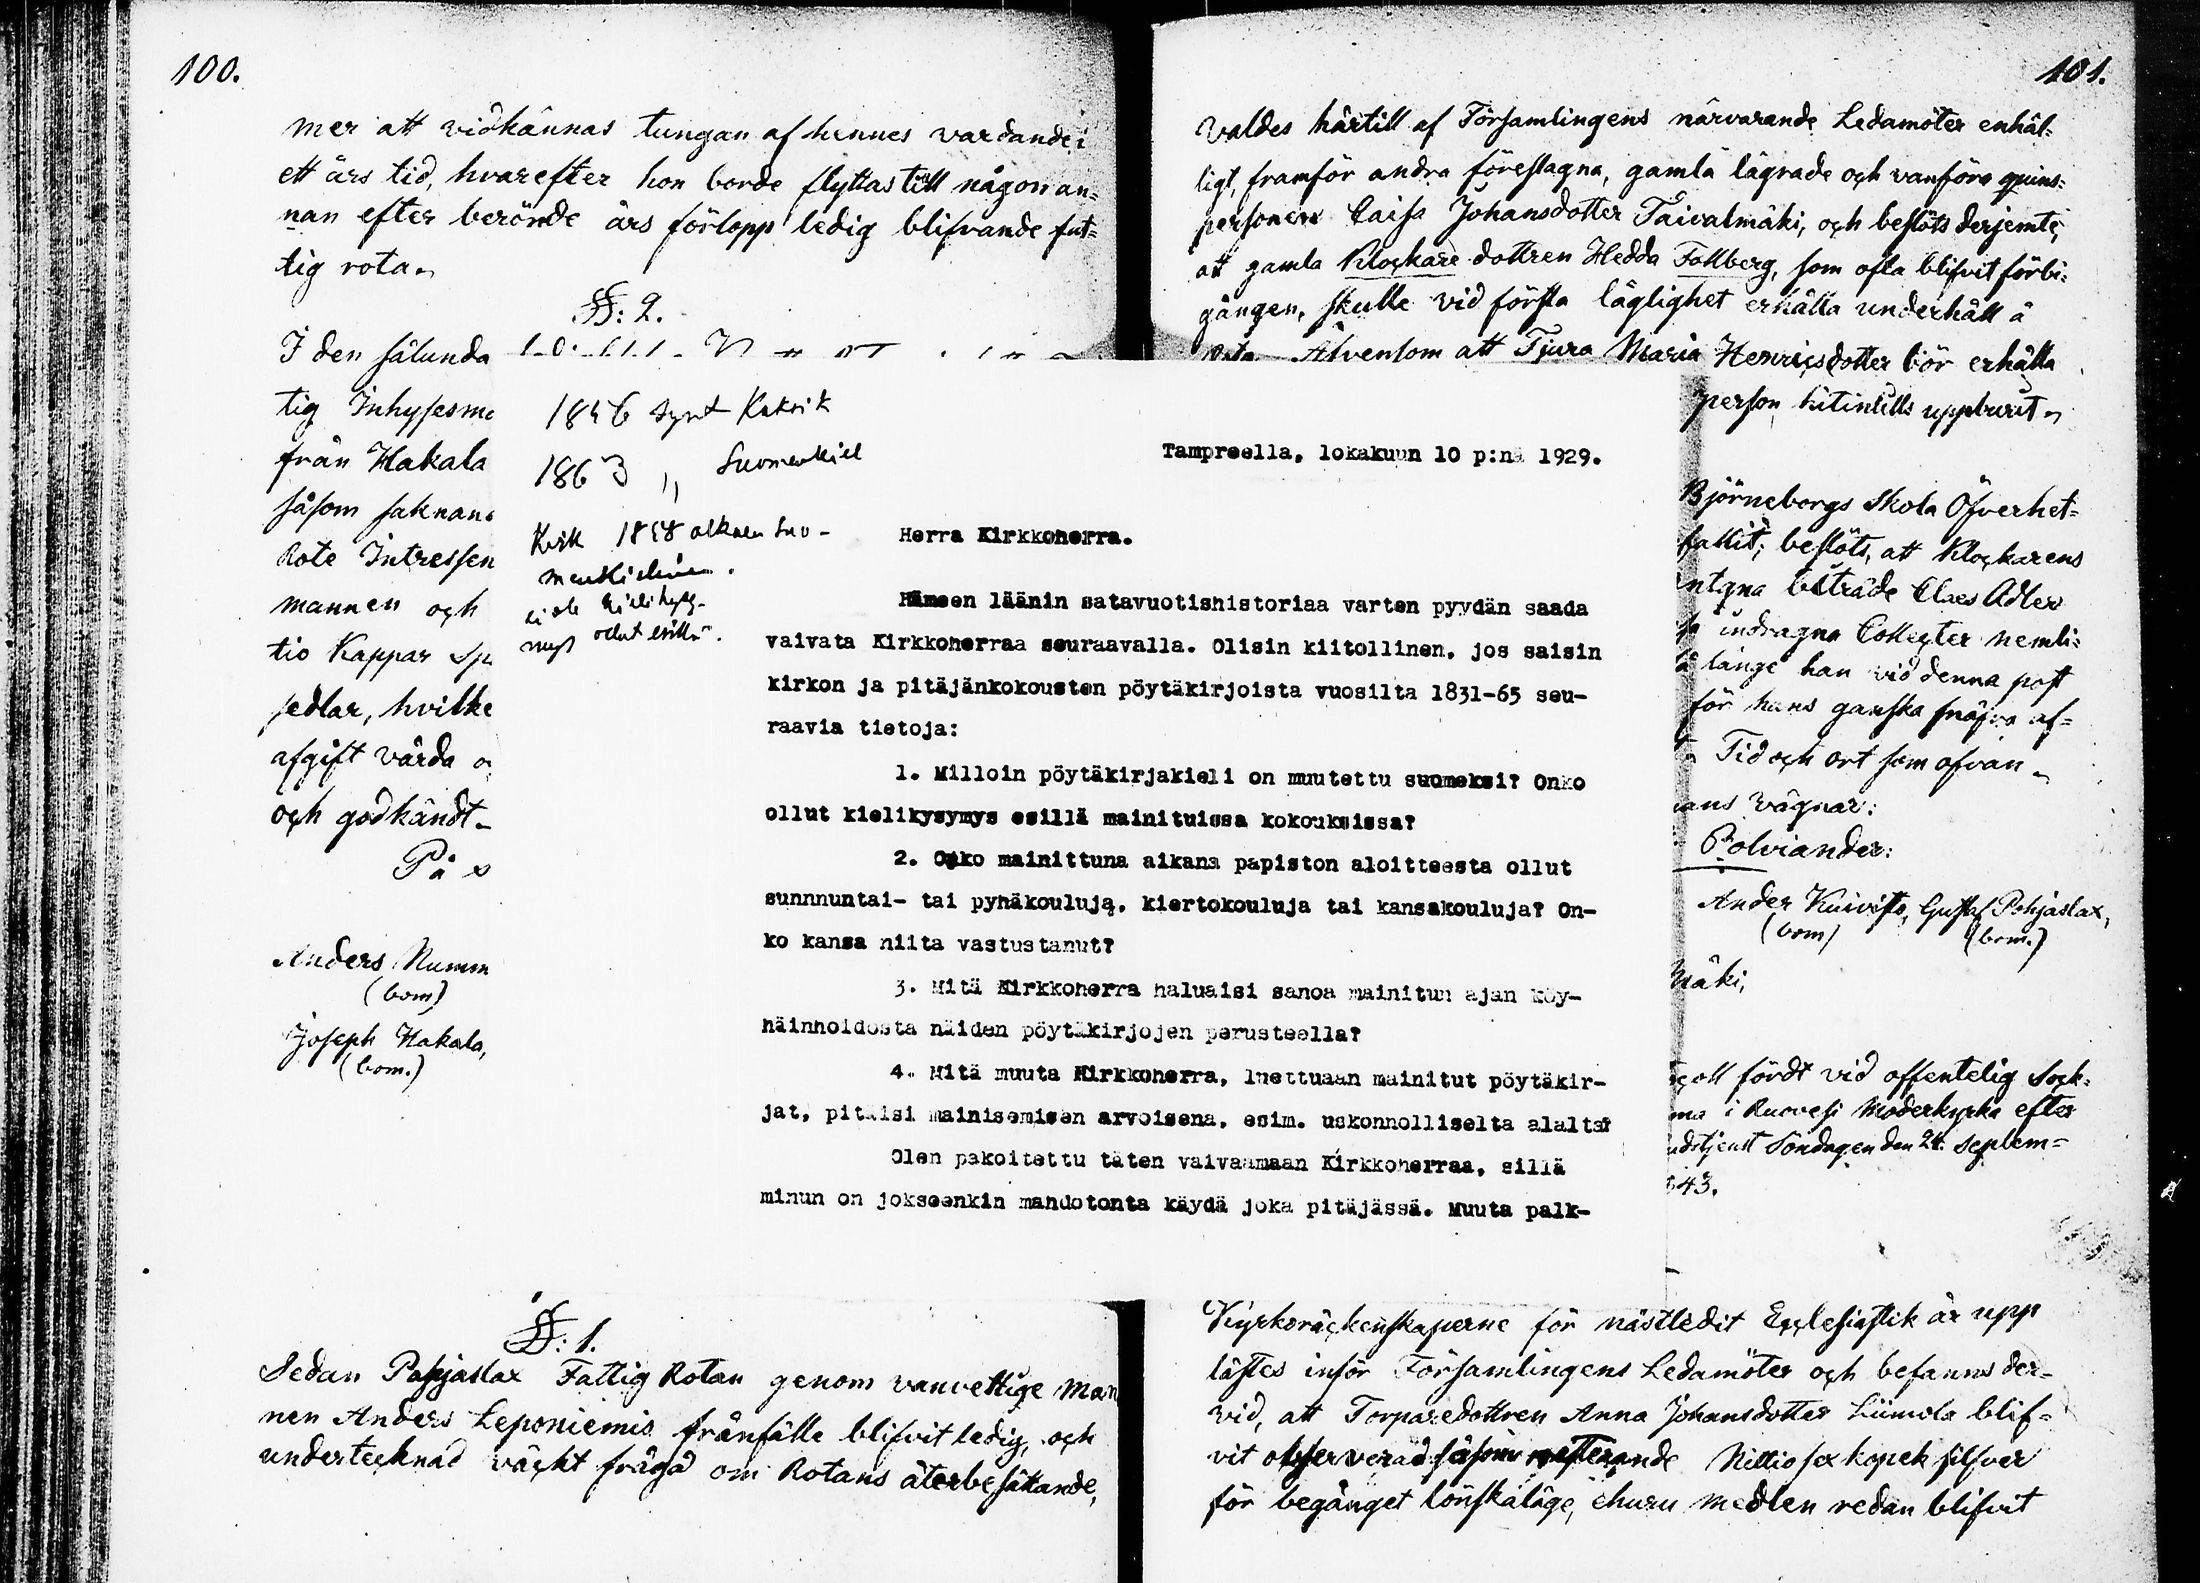 100.
mer att vidkännas tungan af hennes vardande i
ett års tid, hvarefter hon borde flyttas till någon an-
nan efter berörde års förlopp ledig blifvande fat-
tig rota.
§: 2.
I den sålunda
tig Inhyses
från Hakala
såsom saknan
Rote Intressen
mannen och
tio Kappar
sedlar, hvilke
afgift vårda
och godkändt.
På
Anders Numm
(bom)
Joseph Hakala,
(bom.)
§: 1.
Sedan Pohjaslax Fattig Rotan genom vanvettige man
nen Anders Leponiemis frånfälle blifvit ledig, och
undertecknad väckt fråga om Rotans återbesättande,
1846
1863 " Suomenkiel
1858 alkaen Suo-
menkielinen.
ei ole kielikysy-
mys ollut esillä.
Tampreella, lokakuun 10 p:nä 1929.
Herra Kirkkoherra.
Hämeen läänin satavuotishistoriaa varten pyydän saada
vaivata Kirkkoherraa seuraavalla. Olisin kiitollinen, jos saisin
kirkon ja pitäjänkokousten pöytäkirjoista vuosilta 1831-65 seu-
raavia tietoja:
1. Milloin pöytäkirjakieli on muutettu suomeksi? Onko
ollut kielikysymys esillä mainituissa kokouksissa?
2. Onko mainittuna aikana papiston aloitteesta ollut
sunnnuntai- tai pyhäkouluja, kiertokouluja tai kansakouluja? On-
ko kansa niitä vastustanut?
3. Mitä Kirkkoherra haluaisi sanoa mainitun ajan köy-
häinhoidosta näiden pöytäkirjojen perusteella?
4. Mitä muuta Kirkkoherra, luettuaan mainitut pöytäkir-
jat, pitäisi mainisemisen arvoisena, esim. uskonnolliselta alalta?
Olen pakoitettu täten vaivaamaan Kirkkoherraa, sillä
minun on jokseenkin mahdotonta käydä joka pitäjässä. Muuta palk-
101.
valdes härtill af Församlingens närvarande Ledamöter enhäl-
ligt, framför andra föreslagna, gamla lägrade och vanföra qvins-
personen Caisa Johansdotter Taivalmäki, och beslöts derjemte,
att gamla Klockare dottren Hedda Follberg, som ofta blifvit förbi-
gången, skulle vid första läglighet erhålla underhåll å
Rota. Äfvensom att Tjura Maria Henricsdotter bör erhålla
person hitintills uppburit.
Björneborgs skola Öfverhet-
fallit; beslöts, att Klockarens
biträde Claes Adler
indragna Collecter nemli-
länge han vid denna post
för hans ganska snäfva af-
Tid och ort som ofvan.
vägnar:
Polviander:
Ander Kuivisto, Gustaf Pohjaslax,
(bom) (bom.)
mäki,
coll fördt vid offentelig Sock-
i Ruovesi Moderkyrka efter
dstjenst Söndagen den 24. Septem-
843.
Kyrkoräckenskaperne för nästledit Ecclesiastik år upp
lästes inför Församlingens Ledamöter och befanns der-
vid, att Torparedottren Anna Johansdotter Liimola blif-
vit observerad såsom resterande Nittiosex kopek silfver
för begånget lönskaläge, ehuru medlen redan blifvit